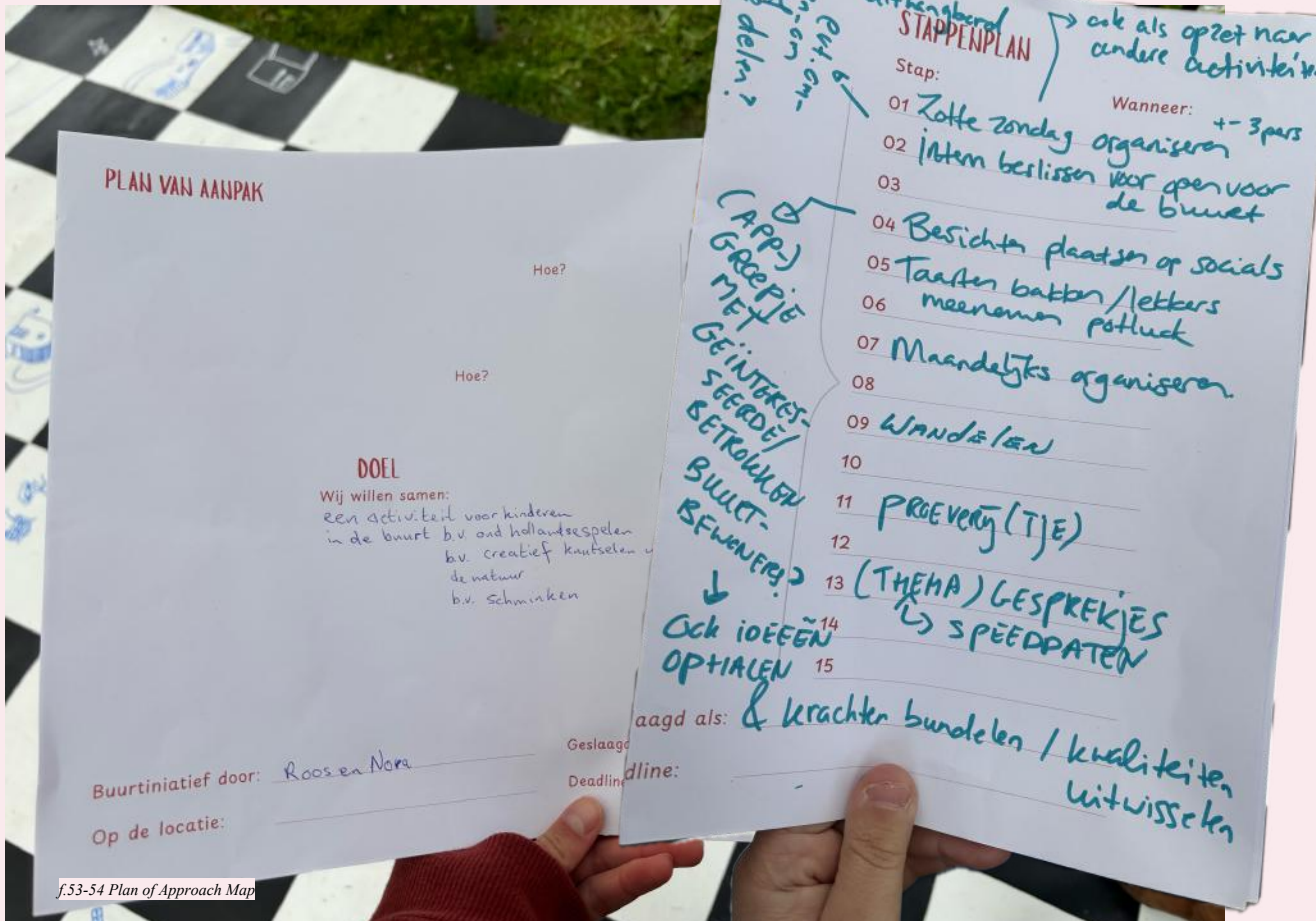 PLAN VAN AANPAK
Hoe?
Hoe?
DOEL
Wij willen samen:
een activiteit voor kinderen
in de buurt b.v. oud hollandse spelen
b.v. creatief knutselen
de natuur
b.v. schminken
Buurtiniatief door: Roos en Nora
Op de locatie:
Geslaagd
Deadlin
uithangbord
ook als opzet naar
andere activiteite
STAPPENPLAN
Stap:
Wanneer:
+- 3 pers
01 Zotte zondag organiseren
02 Intern beslissen voor open voor
de buurt
03
04 Berichten plaatsen op socials
05 Taarten bakken / lekkers
06 meenemen potluck
07 Maandelijks organiseren.
08
09 WANDELEN
10
11 PROEVERIJ (TJE)
12
13 (THEMA) GESPREKJES
14 ↳ SPEEDDATEN
15
delen?
(APP-)
GROEPJE
MET
GEÏNTERES-
SEERDE/
BETROKKEN
BUURT-
BEWONERS?
↓
OOK IDEEËN
OPHALEN
aagd als: & krachten bundelen / kwaliteiten
uitwisselen
dline:
f.53-54 Plan of Approach Map